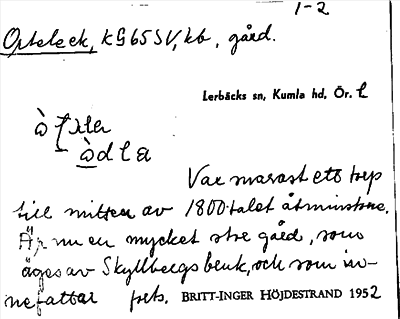 1-2
kG65SV, kb, gård.
Lerbäcks sn, Kumla hd, Ör. L
Var marast ett torp
till mitten av 1800-talet åtminstone.
Är nu en mycket stor gård, som
äges av Skyllbergs bruk, och som in-
nefattar forts. BRITT-INGER HÖJDESTRAND 1952